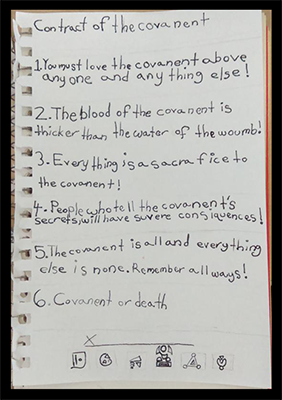 Contract of the covanent
1. You must love the covanent above
anyone and any thing else!
2. The blood of the covanent is
thicker than the water of the woumb!
3. Everything is a sacrafice to
the covanent!
4. People who tell the covanent's
secrets, will have suvere consiquences!
5. The covanent is all and everything
else is none. Remember all ways!
6. Covanent or death
X